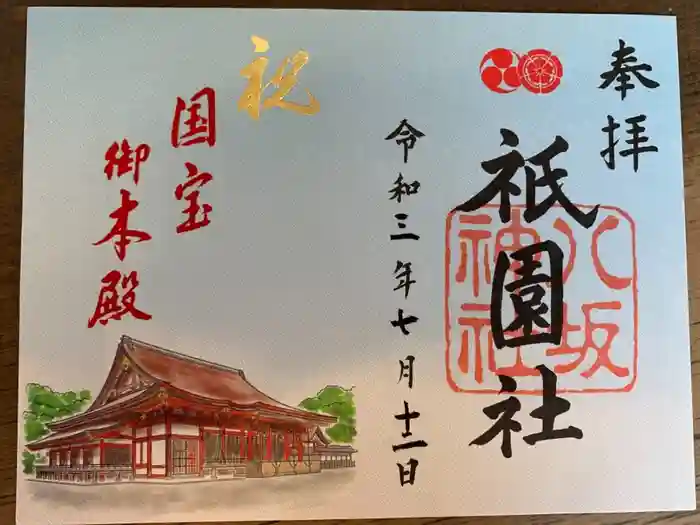 奉拝
祇園社
八坂神社
令和三年七月十二日
祝
国宝
御本殿